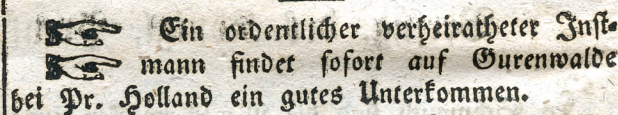 ☞ Ein ordentlicher verheiratheter Inst-
☞ mann findet sofort auf Gurenwalde
bei Pr. Holland ein gutes Unterkommen.